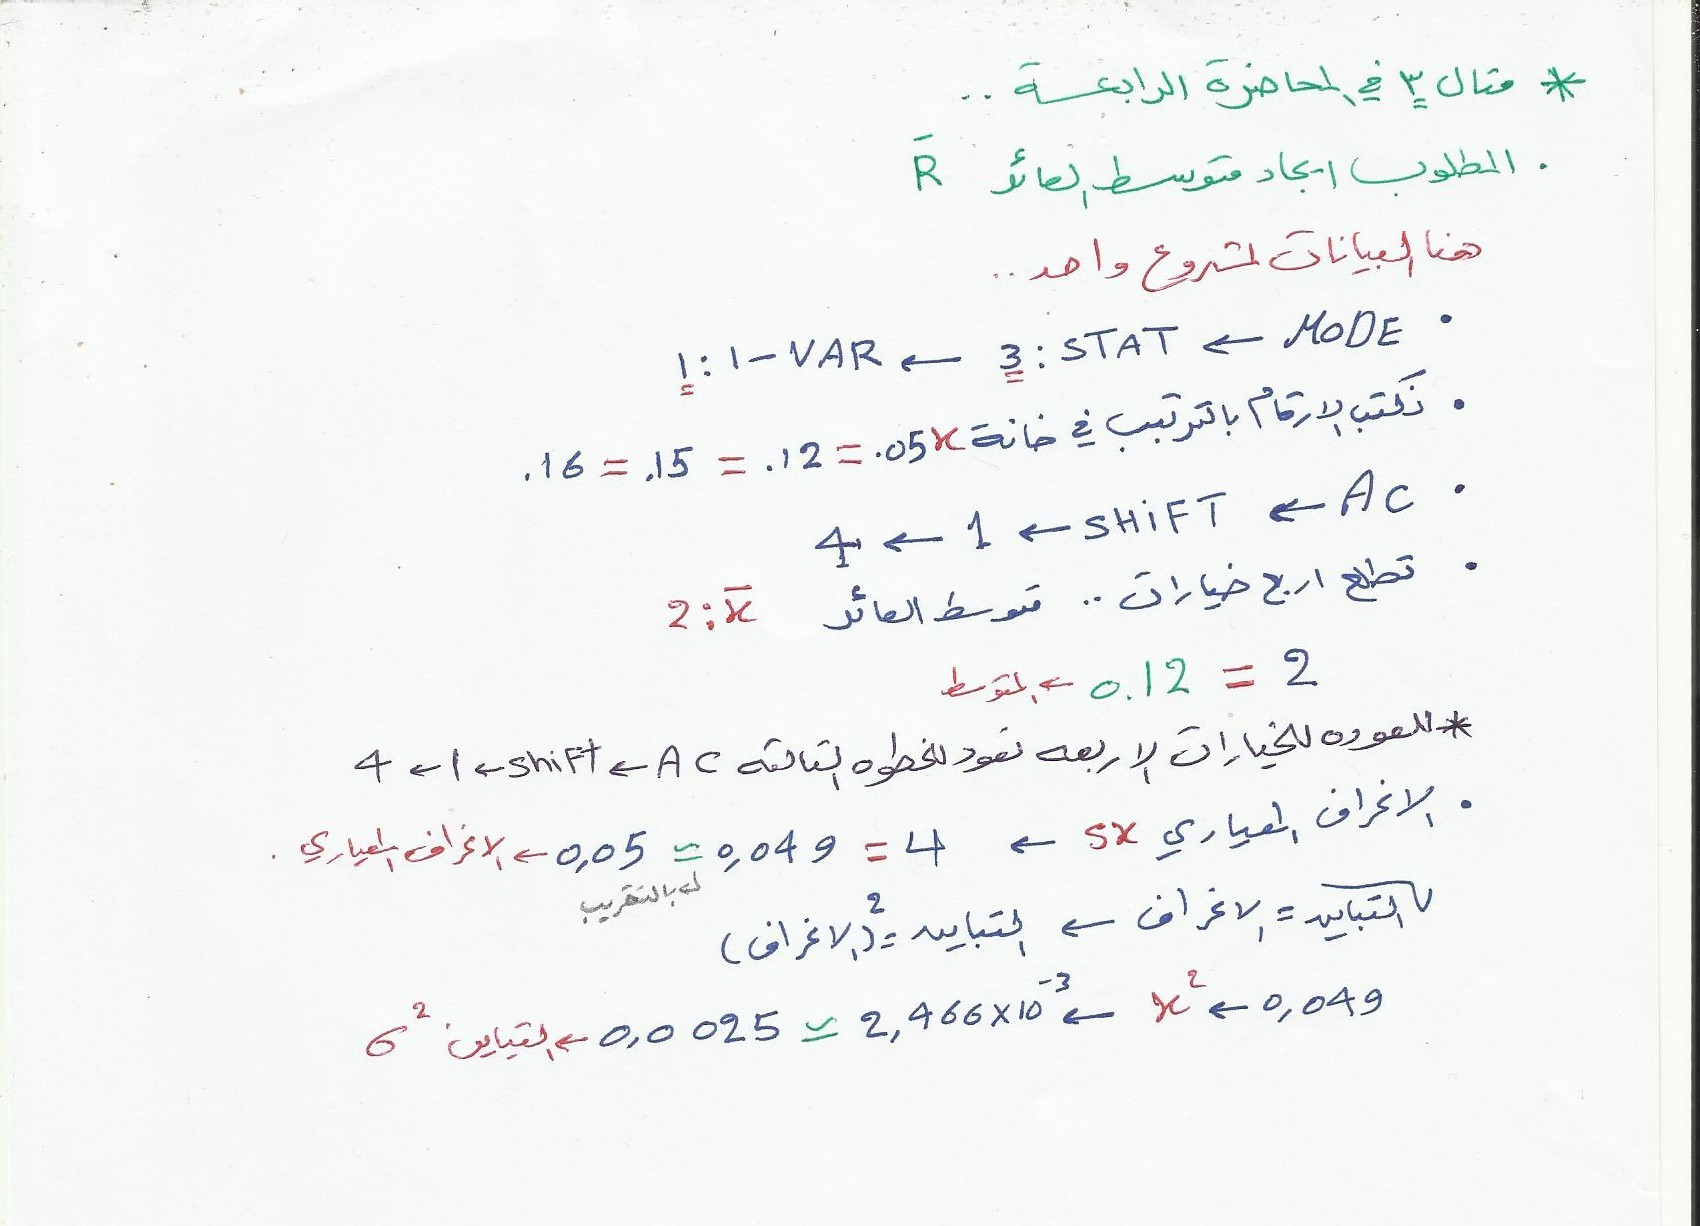 * مثال ٣ في المحاضرة الرابعة ..
. المطلوب ايجاد متوسط العائد R̄
هنا البيانات لمشروع واحد ..
• MODE ← 3 : STAT ← 1 : 1-VAR
• نكتب الارقام بالترتيب في خانة x .05 = .12 = .15 = .16
• AC ← SHiFT ← 1 ← 4
• تطلع اربع خيارات .. متوسط العائد 2 : x̄
2 = 0.12 ← المتوسط
* للعوده للخيارات الاربعه نعود للخطوه الثالثه AC ← shift ← 1 ← 4
• الانحراف المعياري sx ← 4 = 0,049 ≃ 0,05 ← الانحراف المعياري .
له بالتقريب
√التباين = الانحراف ← التباين = (الانحراف)²
0,049 ← x² ← 2,466x10⁻³ ≃ 0,0025 ← التباين σ²